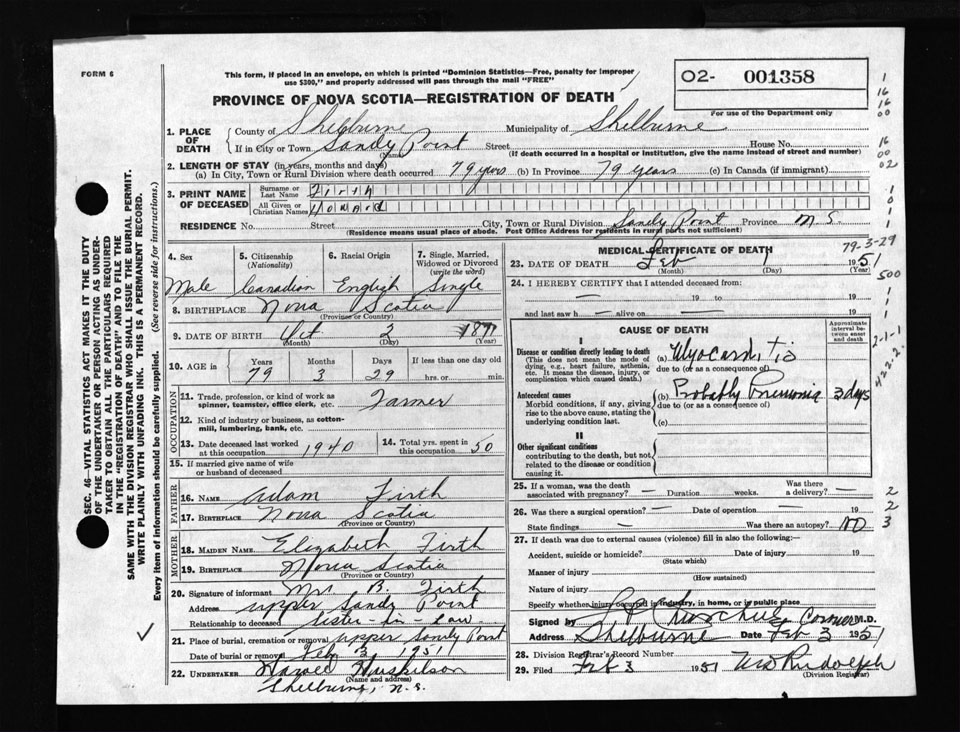 FORM 6
This form, if placed in an envelope, on which is printed "Dominion Statistics—Free, penalty for improper
use $300," and properly addressed will pass through the mail "FREE"
O2- 001358
For use of the Department only
PROVINCE OF NOVA SCOTIA—REGISTRATION OF DEATH
1. PLACE OF DEATH
County of Shelburne Municipality of Shelburne
If in City or Town Sandy Point Street House No.
(Name) (If death occurred in a hospital or institution, give the name instead of street and number)
2. LENGTH OF STAY (in years, months and days)
(a) In City, Town or Rural Division where death occurred 79 years (b) In Province 79 years (c) In Canada (if immigrant)
3. PRINT NAME OF DECEASED
Surname or Last Name Firth
All Given or Christian Names Howard
RESIDENCE No. Street City, Town or Rural Division Sandy Point Province N.S.
(Residence means usual place of abode. Post Office Address for residents in rural parts not sufficient)
4. Sex
Male
5. Citizenship (Nationality)
Canadian
6. Racial Origin
English
7. Single, Married, Widowed or Divorced (write the word)
Single
8. BIRTHPLACE Nova Scotia
(Province or Country)
9. DATE OF BIRTH Oct 2 1871
(Month) (Day) (Year)
10. AGE in Years Months Days If less than one day old
79 3 29 hrs. or min.
OCCUPATION
11. Trade, profession, or kind of work as spinner, teamster, office clerk, etc. Farmer
12. Kind of industry or business, as cotton-mill, lumbering, bank, etc.
13. Date deceased last worked at this occupation 1940
14. Total yrs. spent in this occupation 50
15. If married give name of wife or husband of deceased
FATHER
16. NAME Adam Firth
17. BIRTHPLACE Nova Scotia
(Province or Country)
MOTHER
18. MAIDEN NAME Elizabeth Firth
19. BIRTHPLACE Nova Scotia
(Province or Country)
20. Signature of informant Mrs B. Firth
Address Upper Sandy Point
Relationship to deceased Sister-in-Law
21. Place of burial, cremation or removal Upper Sandy Point
Date of burial or removal Feb 3, 1951
22. UNDERTAKER Harold Huskilson
(Name and address)
Shelburne, N.S.
MEDICAL CERTIFICATE OF DEATH
79-3-29
23. DATE OF DEATH Feb 1951
(Month) (Day) (Year)
24. I HEREBY CERTIFY that I attended deceased from:
— 19 to — 19
and last saw h — alive on — 19
CAUSE OF DEATH
Approximate interval between onset and death
I
Disease or condition directly leading to death (a) Myocarditis
(This does not mean the mode of dying, e.g., heart failure, asthenia, etc. It means the disease, injury, or complication which caused death.)
due to (or as a consequence of)
Antecedent causes (b) Probably Pneumonia 3 days
Morbid conditions, if any, giving rise to the above cause, stating the underlying condition last.
due to (or as a consequence of)
(c)
II
Other significant conditions
contributing to the death, but not related to the disease or condition causing it.
25. If a woman, was the death associated with pregnancy? — Duration weeks. Was there a delivery? —
26. Was there a surgical operation? — Date of operation — 19
State findings — Was there an autopsy? No
27. If death was due to external causes (violence) fill in also the following:—
Accident, suicide or homicide? Date of injury 19
(State which)
Manner of injury
(How sustained)
Nature of injury
Specify whether injury occurred in industry, in home, or in public place
Signed by Churchill Coroner M.D.
Address Shelburne Date Feb 3 1951
28. Division Registrar's Record Number
29. Filed Feb 3 1951 Rudolph
(Division Registrar)
SEC. 46—VITAL STATISTICS ACT MAKES IT THE DUTY
OF THE UNDERTAKER OR PERSON ACTING AS UNDER-
TAKER TO OBTAIN ALL THE PARTICULARS REQUIRED
IN THE "REGISTRATION OF DEATH" AND TO FILE THE
SAME WITH THE DIVISION REGISTRAR WHO SHALL ISSUE THE BURIAL PERMIT.
WRITE PLAINLY WITH UNFADING INK. THIS IS A PERMANENT RECORD.
Every item of information should be carefully supplied. (See reverse side for instructions.)
1
16
16
00
16
00
02
1
1
0
1
1
500
1
1
1
2-1-1
422.2
2
2
3